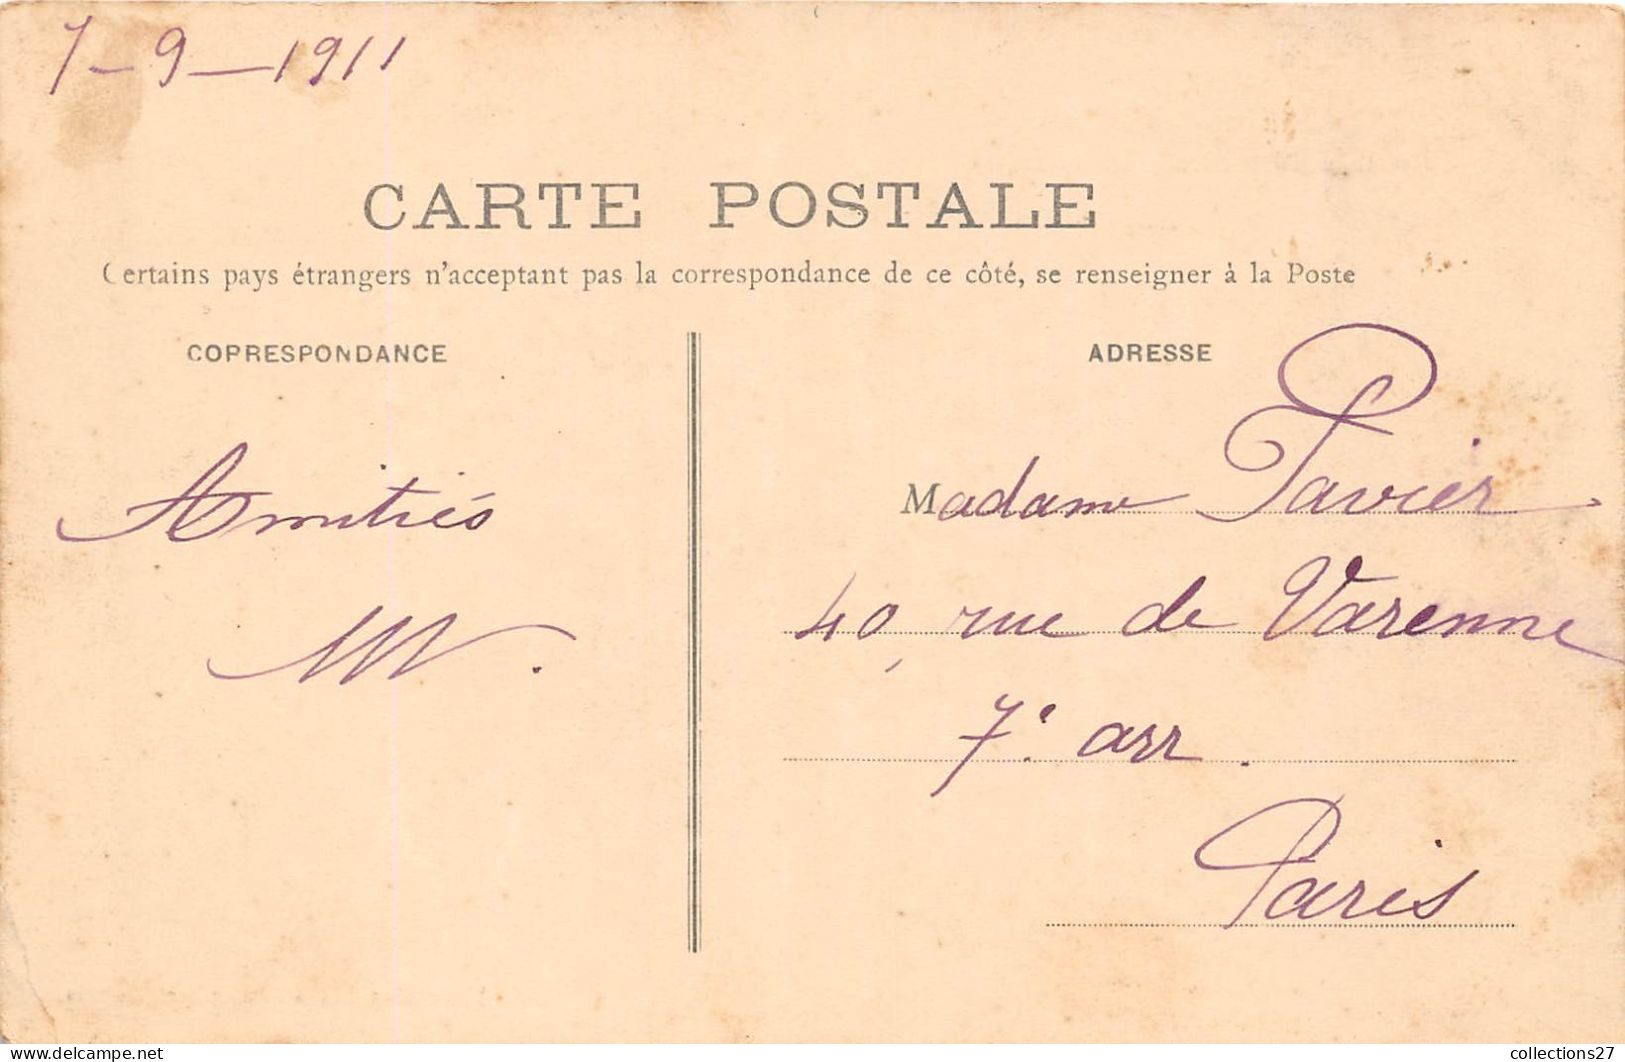 7-9-1911
CARTE POSTALE
Certains pays étrangers n'acceptant pas la correspondance de ce côté, se renseigner à la Poste
CORRESPONDANCE
ADRESSE
Amitiés
Madame Pavier
40, rue de Varenne
7e arr.
Paris
collections27